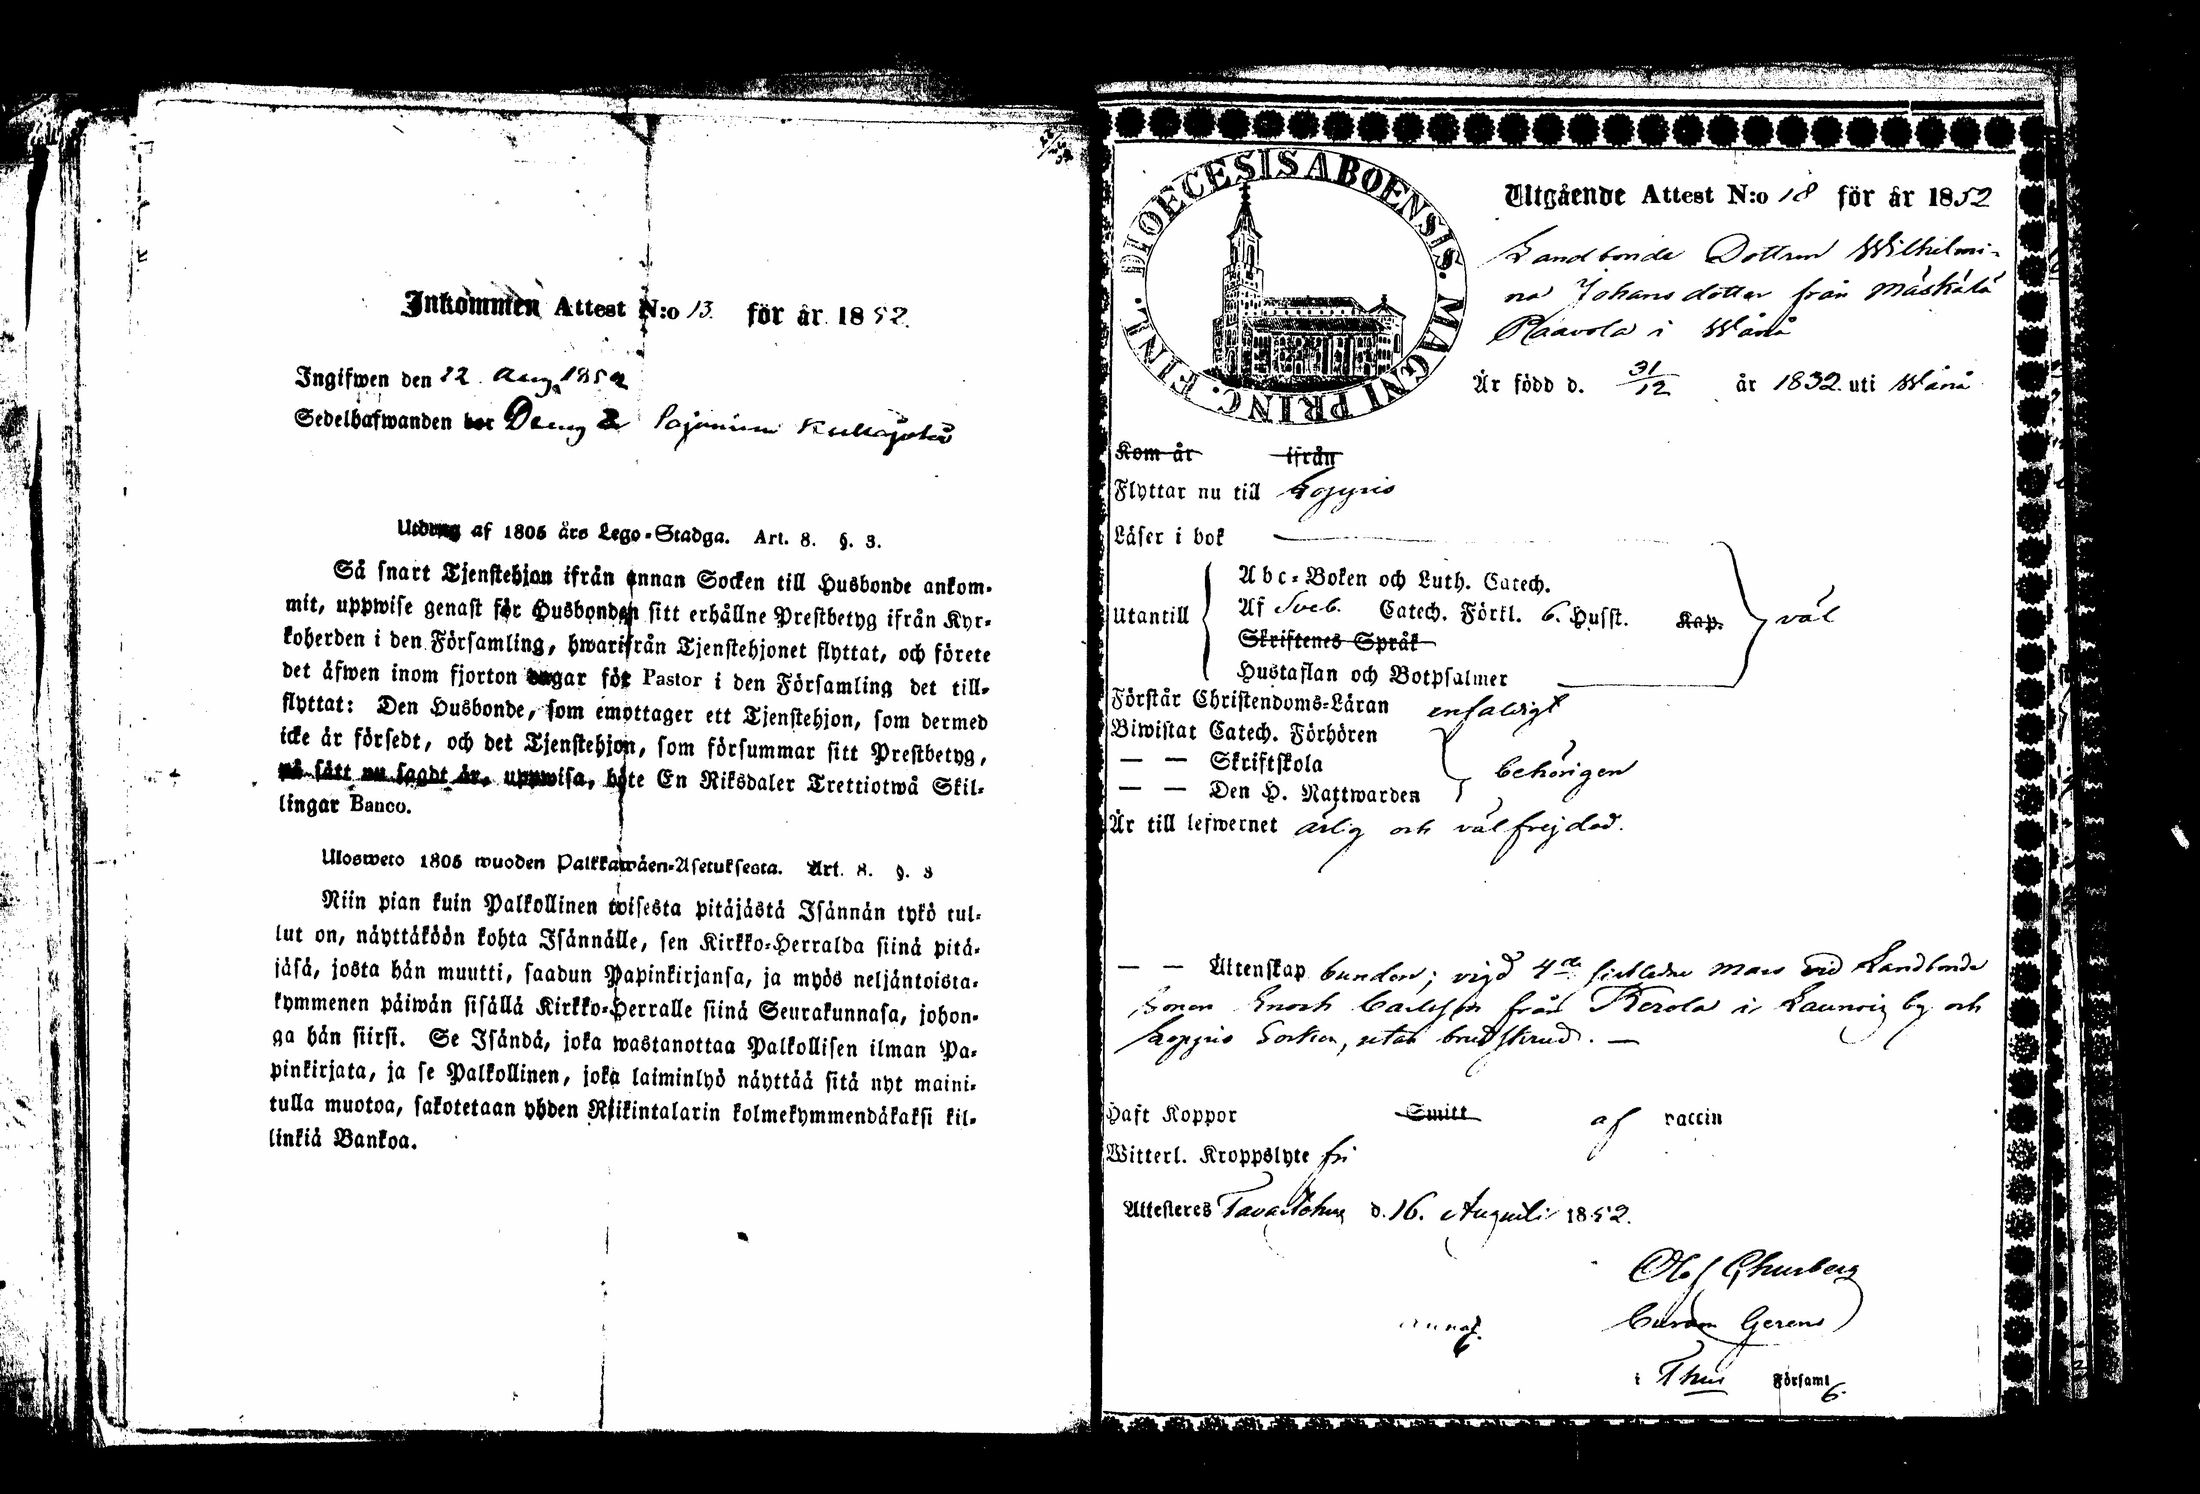 Inkommen Attest N:o 13. för år 1852.
Ingifwen den 22 Aug. 1852
Sedelhafwanden bor
Utdrag af 1805 års Lego-Stadga. Art. 8. §. 3.
Så snart Tjenstehjon ifrån annan Socken till Husbonde ankom-
mit, uppwise genast för Husbonden sitt erhållne Prestbetyg ifrån Kyr-
koherden i den Församling, hwarifrån Tjenstehjonet flyttat, och förete
det äfwen inom fjorton dagar för Pastor i den Församling det till-
flyttat: Den Husbonde, som emottager ett Tjenstehjon, som dermed
icke är försedt, och det Tjenstehjon, som försummar sitt Prestbetyg,
på sätt nu sagdt är, uppwisa, böte En Riksdaler Trettiotwå Skil-
lingar Banco.
Ulosweto 1805 wuoden Palkkawäen-Asetuksesta. Art. 8. §. 3
Niin pian kuin Palkollinen toisesta pitäjästä Isännän tykö tul-
lut on, näyttäköön kohta Isännälle, sen Kirkko-Herralda siinä pitä-
jäsä, josta hän muutti, saadun Papinkirjansa, ja myös neljäntoista-
kymmenen päiwän sisällä Kirkko-Herralle siinä Seurakunnasa, johon-
ga hän siirsi. Se Isändä, joka wastanottaa Palkollisen ilman Pa-
pinkirjata, ja se Palkollinen, joka laiminlyö näyttää sitä nyt maini-
tulla muotoa, sakotetaan yhden Riikintalarin kolmekymmendäkaksi kil-
linkiä Bankoa.
DIOECESIS ABOENSIS. MAGNI PRINC. FINL.
Utgående Attest N:o 18 för år 1852
Landbonde Dottren Wilhelmi-
na Johansdotter från Mäskälä
Paavola i Wånå
Är född d. 31/12 år 1832. uti Wånå
Kom år ifrån
Flyttar nu till Loppis
Läser i bok
Utantill
Abc-Boken och Luth. Catech.
Af Sveb. Catech. Förkl. 6. Husst. Kap.
Skriftenes Språk
Hustaflan och Botpsalmer
väl
Förstår Christendoms-Läran enfaldigt
Biwistat Catech. Förhören
— — Skriftskola
— — Den H. Nattwarden
behörigen
Är till lefwernet ärlig och välfrejdad.
— — Äktenskap bunden; vigd 4de sistledne Mars vid Landbonde
Sonen Enoch Carlsson från Kerola i Launois by och
Loppis Socken, utan brudskrud. —
Haft Koppor Smitt af vaccin
Witterl. Kroppslyte fri
Attesteres Tavastehus d. 16. Augusti 1852.
Olof Churberg
Curam Gerens
i Thus Församl.
6.